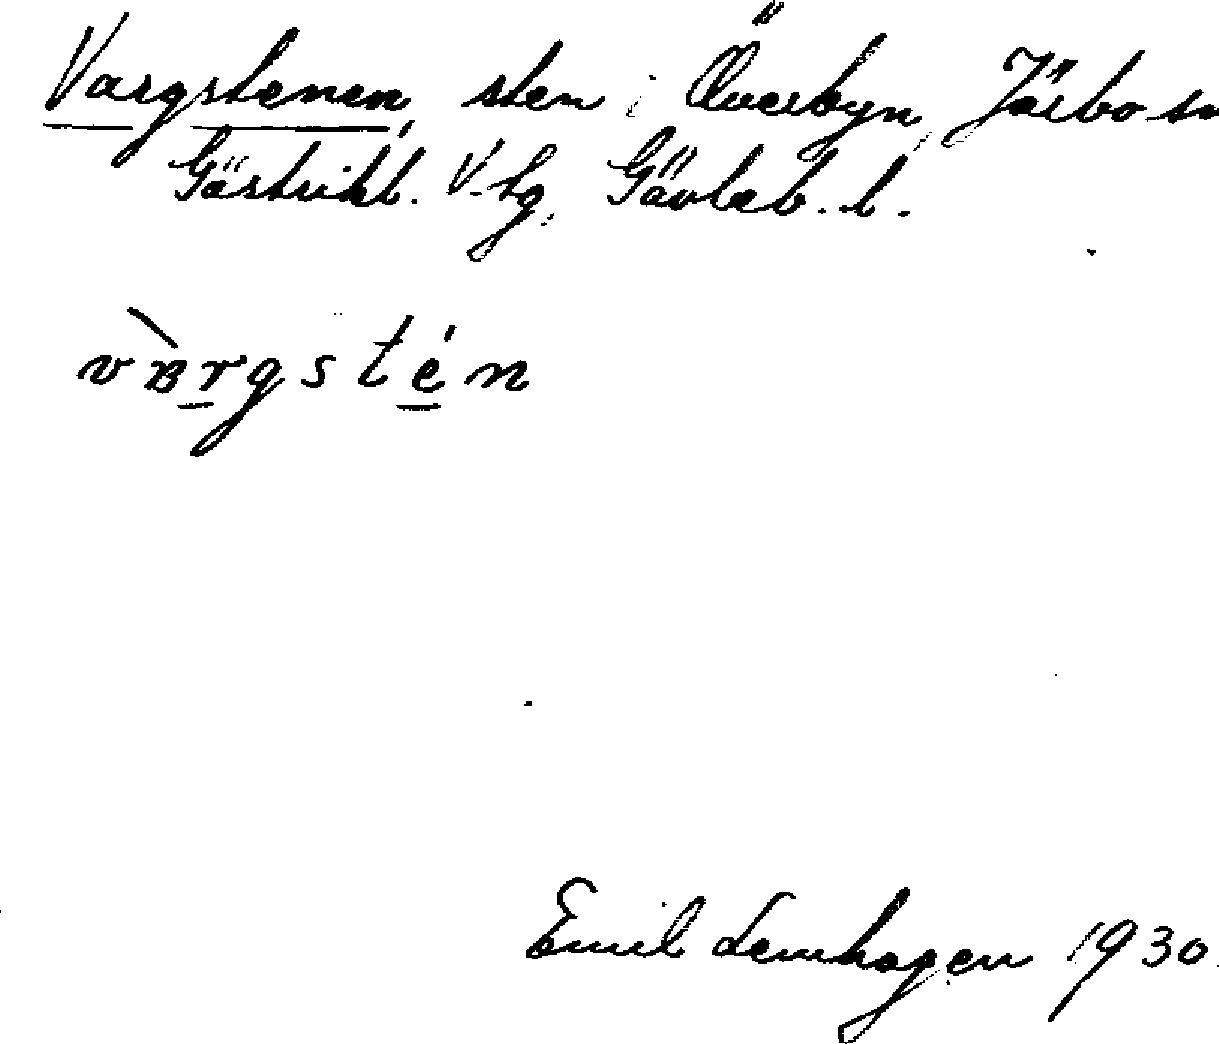 Vargstenen, sten i Överbyn, Järbo sn
Gästrikl. V. tg, Gävleb. l.
vàrgstén
Emil Lemhagen 1930.